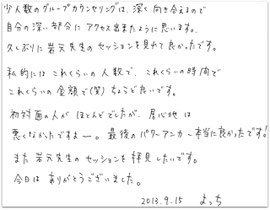 少人数のグループカウンセリングは、深く向き合えるので
自分の深い部分にアクセス出来たように思います。
久しぶりに岩元先生のセッションを見れて良かったです。
私的にはこれくらいの人数で、これくらいの時間で
これくらいの金額で(笑)ちょうど良いです。
初対面の人がほとんどでしたが、居心地は
悪くなかったですよー。最後のパワーアンカー本当に良かったです!
また岩元先生のセッションを拝見したいです。
今日はありがとうございました。
2013.9.15 まっち